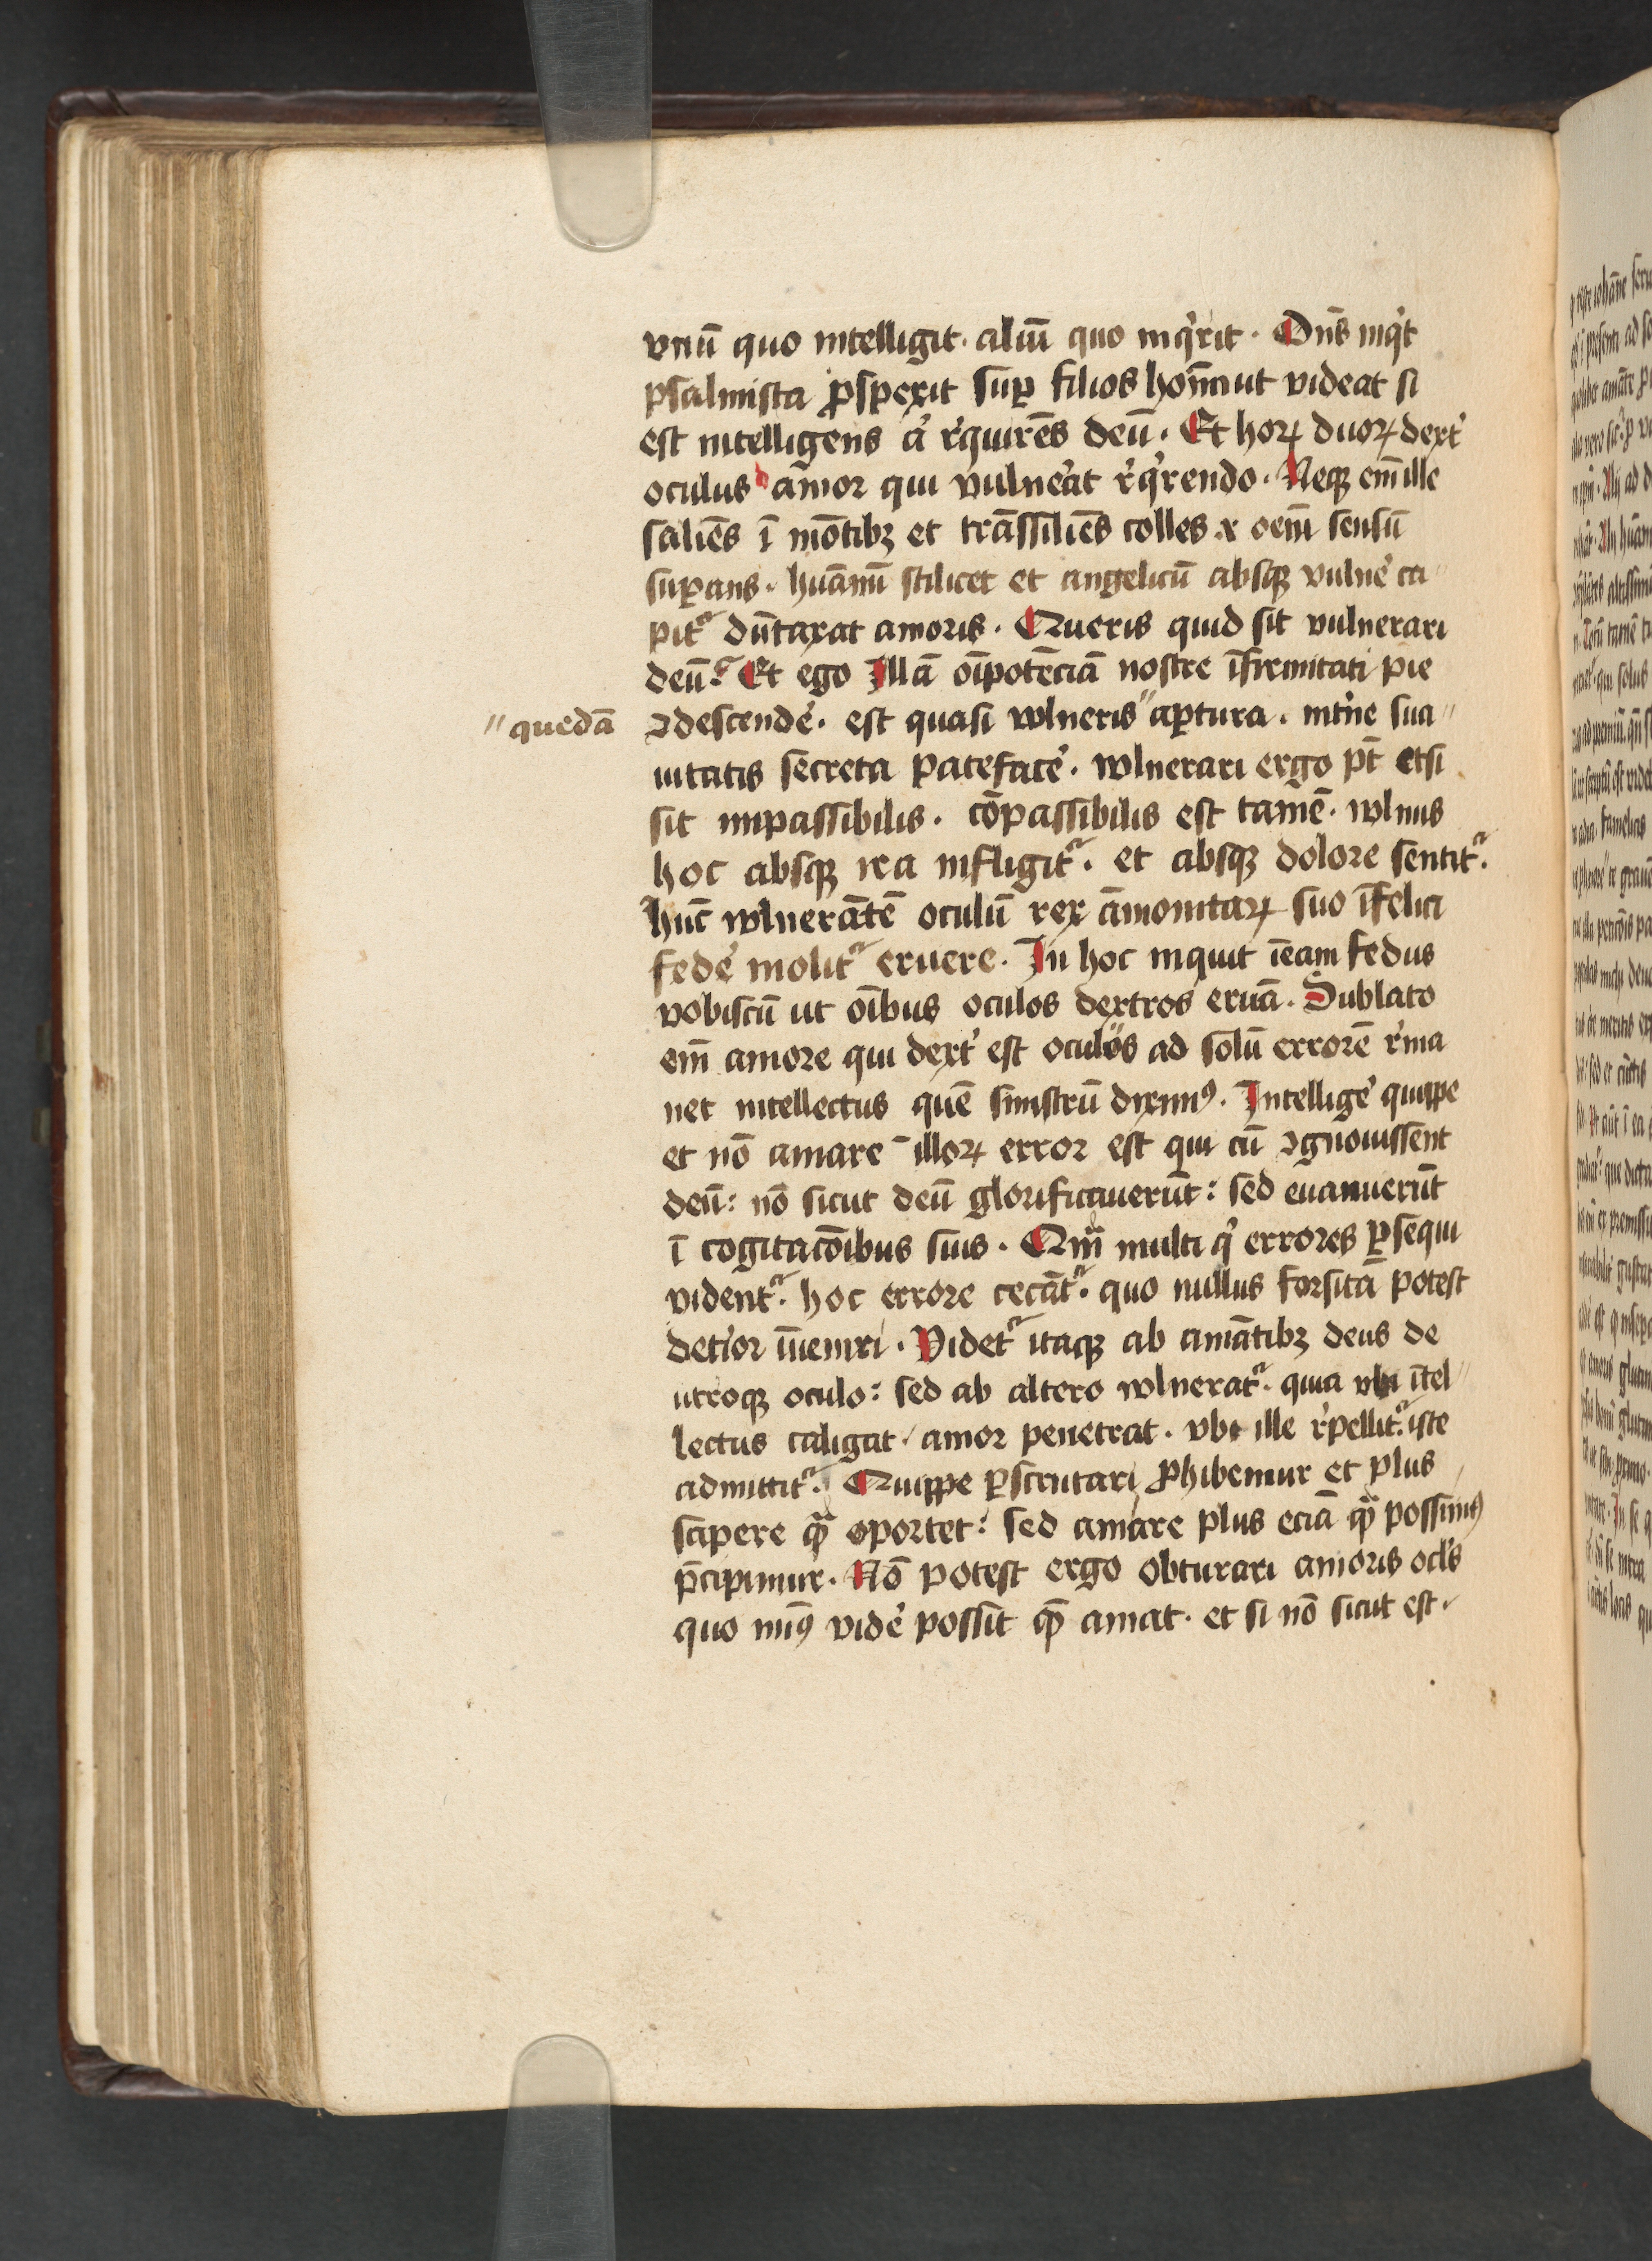 vnū quo intelligit· aliū quo inqͥrit· Dn̄s inqͥt
psalmista ꝓspexit suꝑ filios hoīm ut videat si
est intelligens aͭ rͤquirēs deū· Et hoꝝ duoꝝ dext᾿
oculus amor qui vulneͣt rͤqͥrendo· Neqꝫ em̄ ille
saliēs ī mōtibꝫ et trāssiliēs colles ⁊ oēm sensū
suꝑans· huānū scilicet et angelicū absqꝫ vulne᾿ ca〃
pitᷣ dūtaxat amoris· Queris quid sit vulnerari
deū? Et ego Illā oīpotēciā nostre īfirmitati pie
ꝯdescende᾿· est quasi wlneris〃 aꝑtura· int᾿ne sua〃
〃quedā
uitatis secreta pateface᾿· wlnerari ergo pt̄ etsi
sit impassibilis· cōpassibilis est tamē· wlnus
hoc absqꝫ ira infligitᷣ· et absqꝫ dolore sentitᷣ·
hūc wlnerātē oculū rex āmonitaꝝ suo īfelici
fede᾿ molitᷣ eruere· In hoc inquit ieam fedus
vobiscū ut oībus oculos dextros eruā· Sublato
em̄ amore qui dext᾿ est oculus ad solū errorē rͤma
net intellectus quē sinistrū diximꝰ· Intellige᾿ quippe
et nō amare illoꝝ error est qui cū ꝯgnouissent
deū: nō sicut deū glorificauerūt: sed euanuerūt
ī cogitacōibus suis· Qm̄ multi qͥ errores ꝑsequi
videntᷣ· hoc errore cecātᷣ· quo nullus forsitā potest
det᾿ior īueniri· Videtᷣ itaqꝫ ab amātibꝫ deus de
utroqꝫ oculo: sed ab altero wlneratᷣ· quia vbi ītel〃
lectus caligat/ amor penetrat· vbi ille rͤpellitᷣ· iste
admittitᷣ· Quippe ꝑscrutari ꝓhibemur et plus
sapere qͣ̄ oportet: sed amare plus eciā qͣ̄ possimꝰ
p̄cipimur· Nō potest ergo obturari amoris ocl᾿s
quo minꝰ vide᾿ possit qͤ̄ amat· et si nō sicut est·